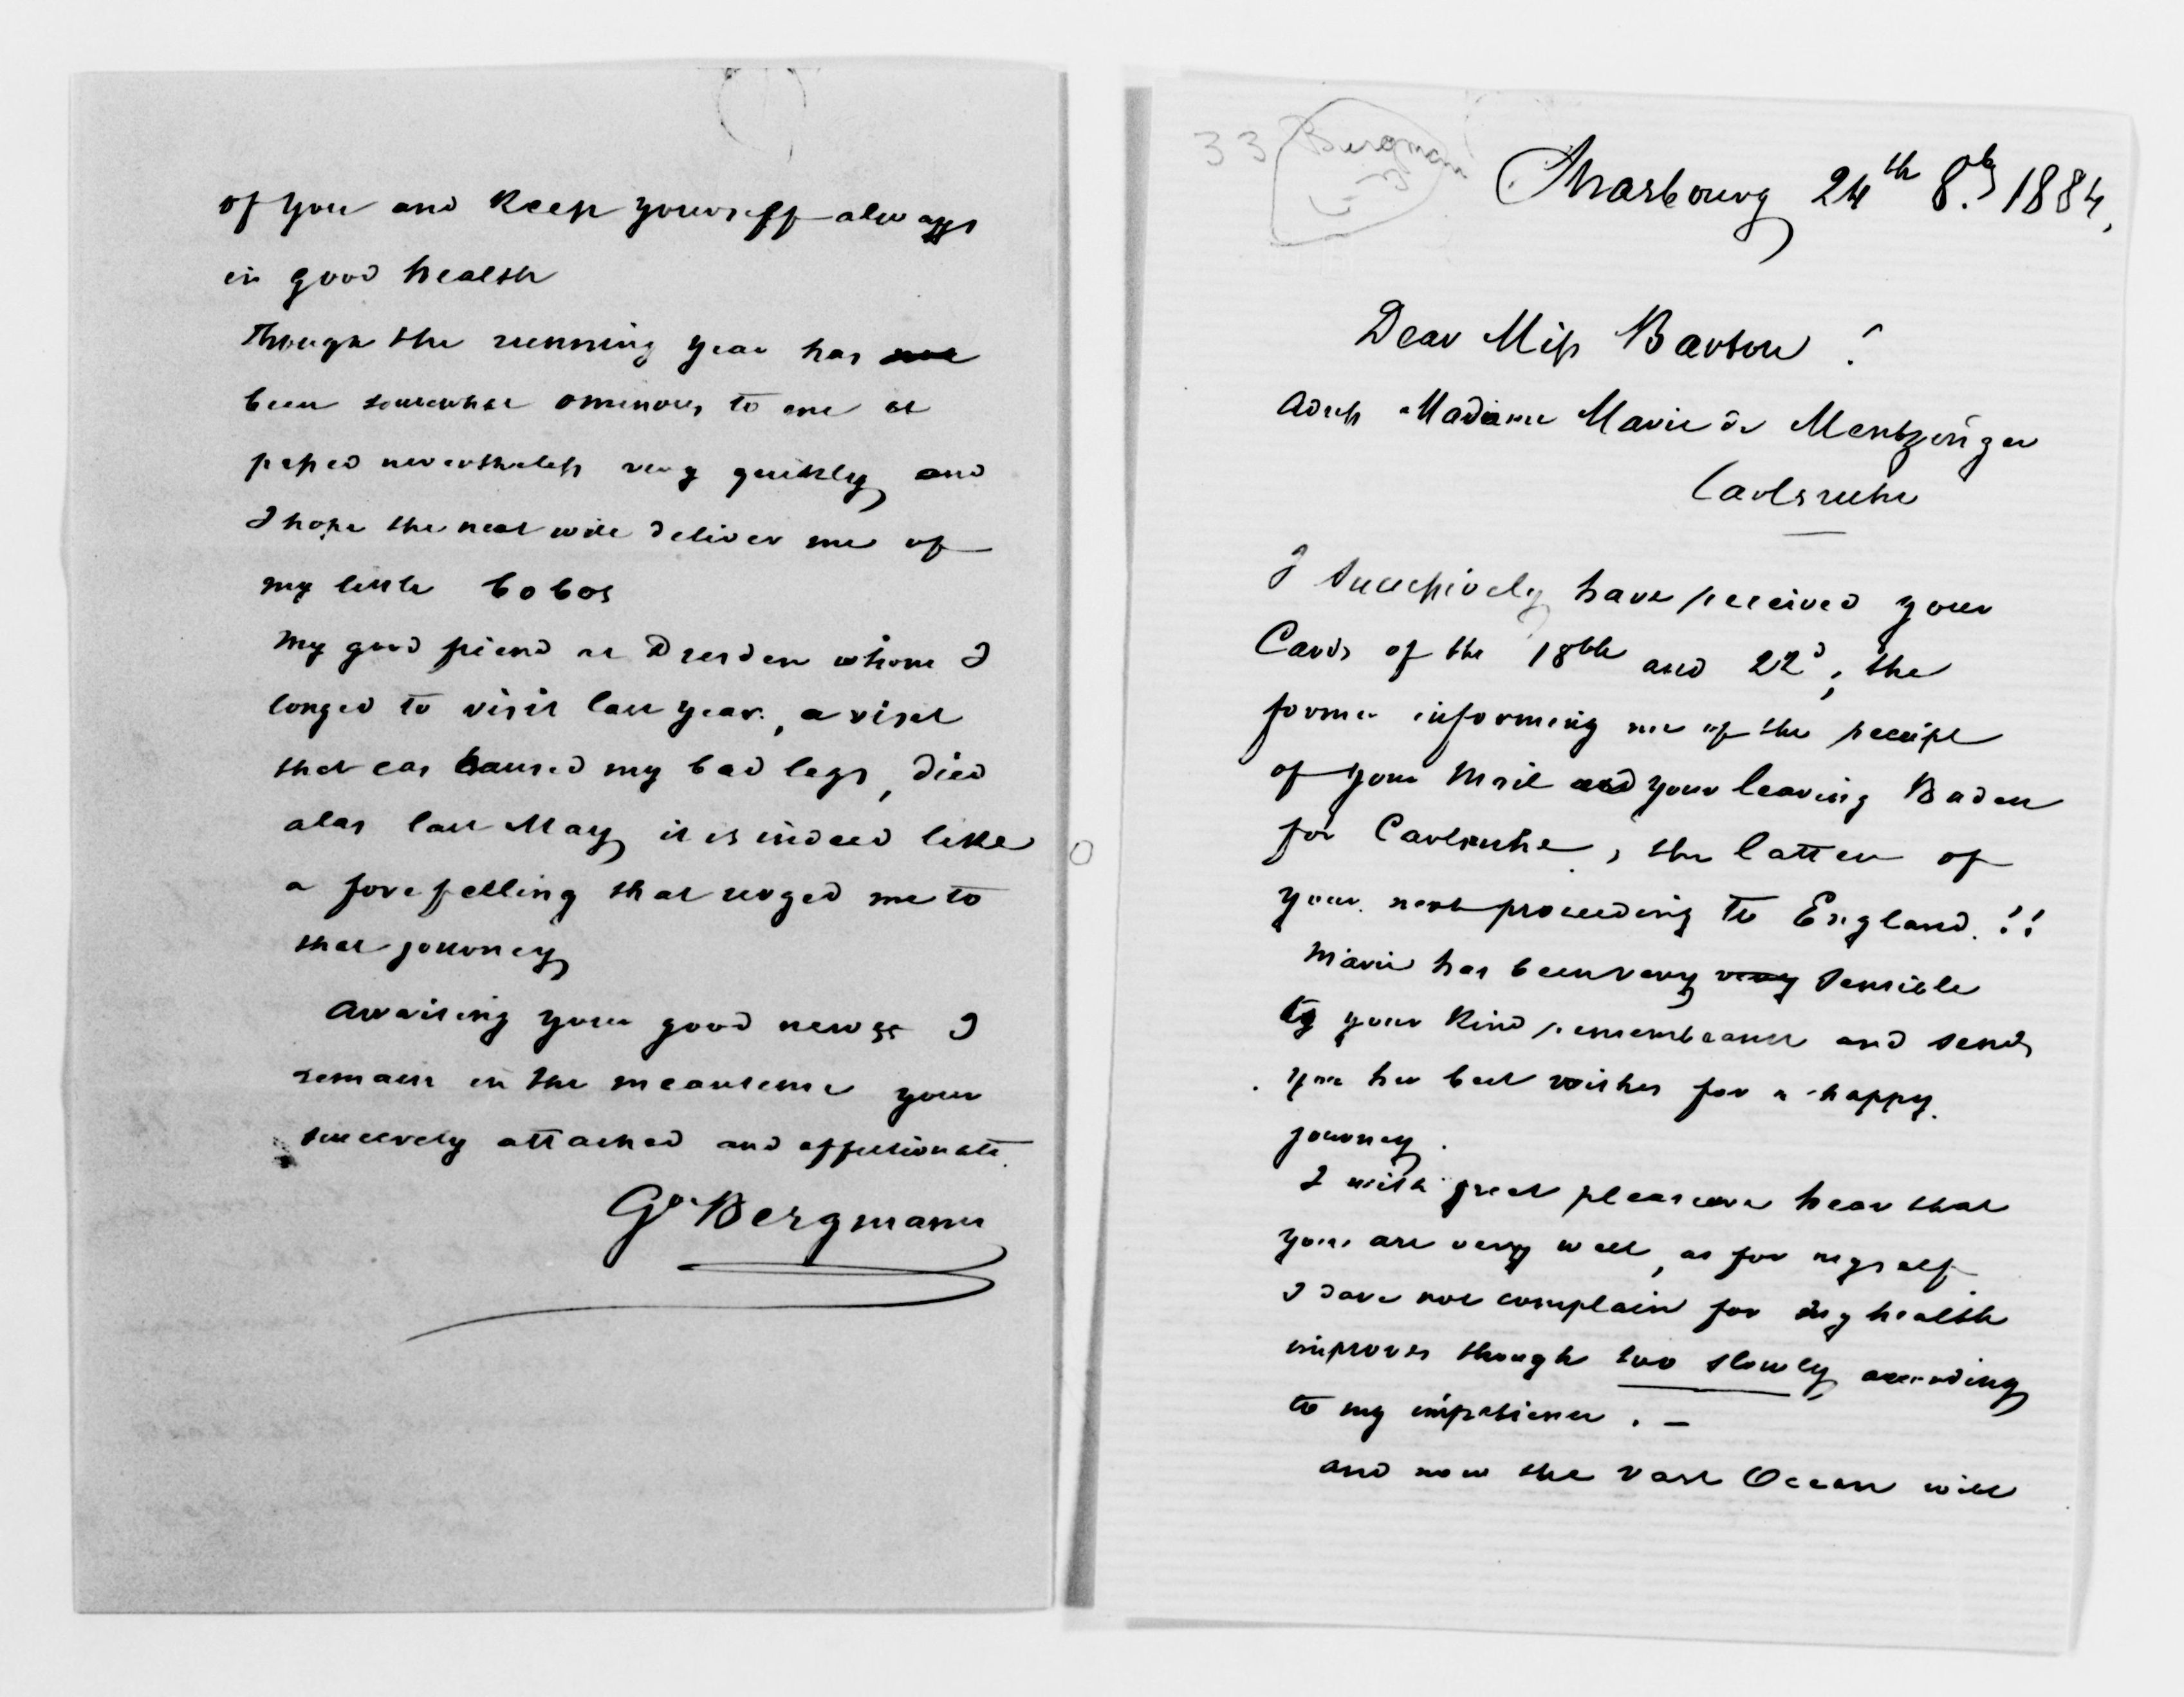 of you and keep yourseff always
in good health
Though the running year has not
been somewhat ominous to me it
passed nevertheless very quickly and
I hope the next will deliver me of
my little bobos
My good friend at Dresden whom I
longed to visit last year, a visit
that cas caused my bad legs, died
alas last May it is indeed like
a forefelling that urged me to
that journey
Awaiting your good news I
remain in the meantime your
sincerely attached and affectionate
Gv Bergmann
33 Bergman
Strasbourg 24th 8.br 1884,
Dear Miss Barton!
adress Madame Marie de Mentzinger
Carlsruhe
I successively have received your
Cards of the 18th and 22d; the
former informing me of the receipt
of your mail and your leaving Baden
for Carlsruhe, the latter of
your next proceeding to England.!!
Marie has been very very sensible
to your kind remembrance and sends
you her best wishes for a happy
journey.
I with great pleasure hear that
you are very well, as for myself
I dare not complain for my health
improves though too slowly according
to my impatience. –
and now the vast Ocean will